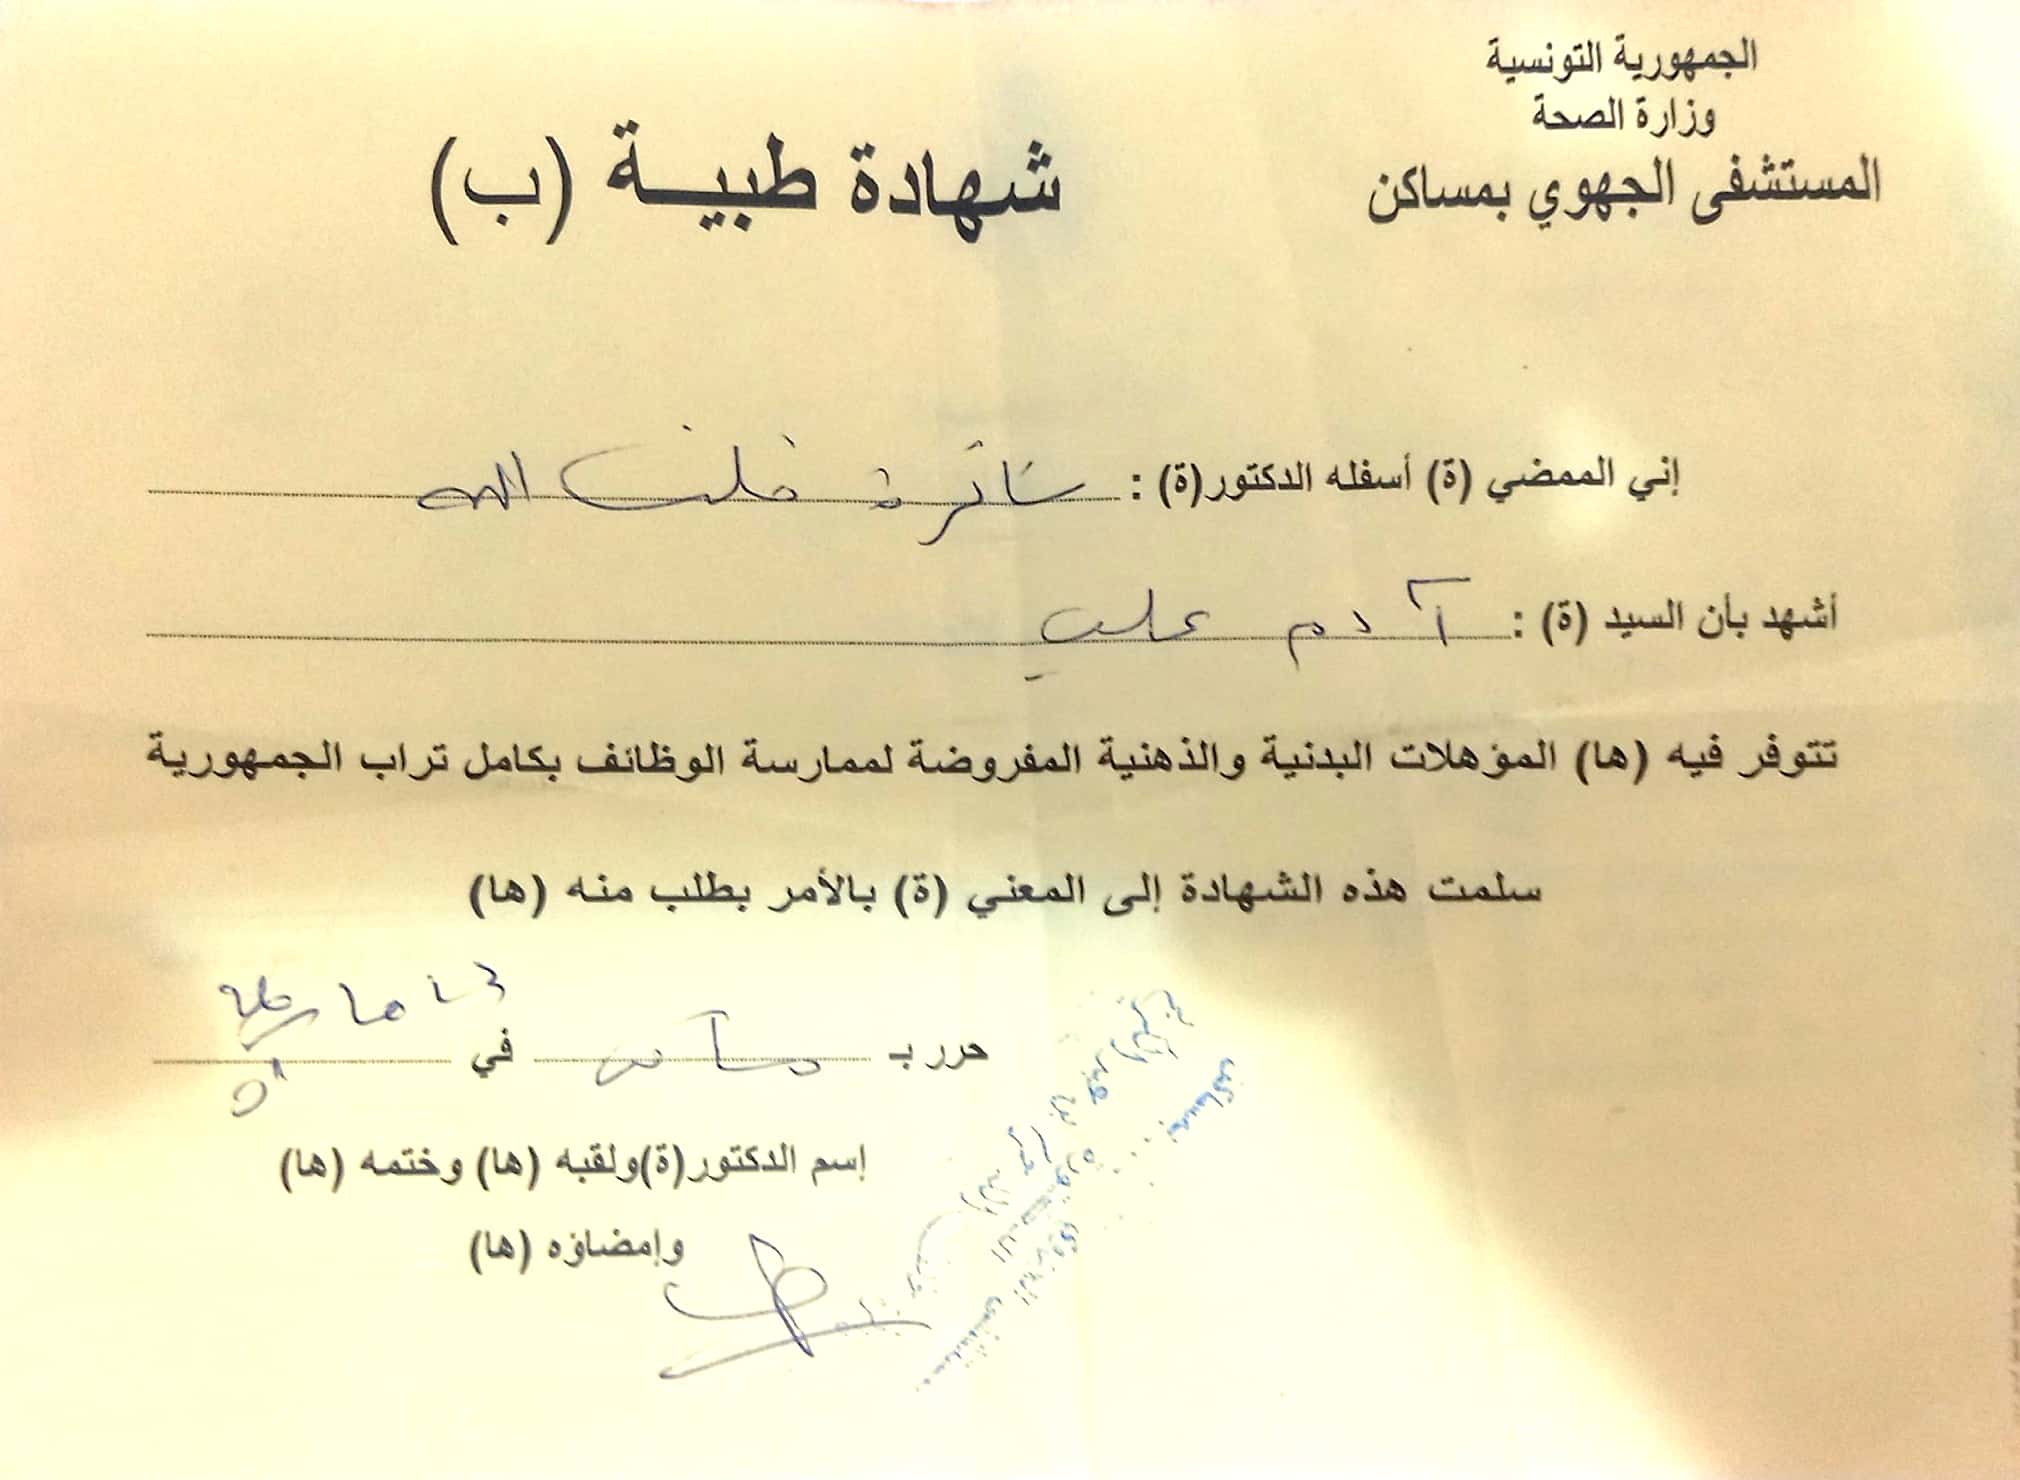 الجمهورية التونسية
وزارة الصحة
المستشفى الجهوي بمساكن
شهادة طبية (ب)
إني الممضي (ة) أسفله الدكتور(ة) : خلف الله
أشهد بأن السيد (ة) : آدم علي
تتوفر فيه (ها) المؤهلات البدنية والذهنية المفروضة لممارسة الوظائف بكامل تراب الجمهورية
سلمت هذه الشهادة إلى المعني (ة) بالأمر بطلب منه (ها)
حرر بـ في
إسم الدكتور(ة)ولقبه (ها) وختمه (ها)
وإمضاؤه (ها)
بمساكن